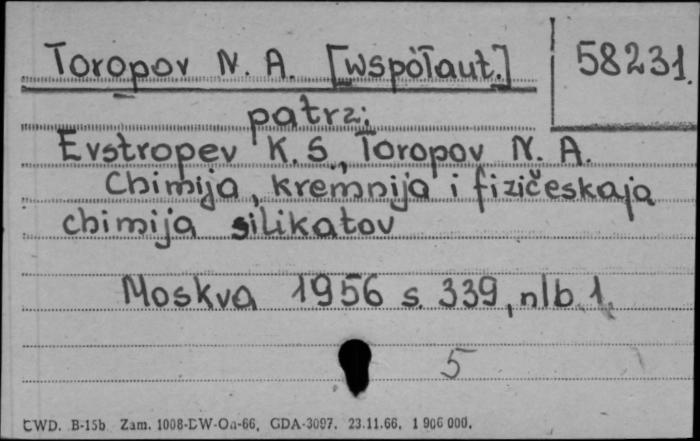 Toropov N. A. [współaut.] 58231.
patrz:
Evstropev K. S., Toropov N. A.
Chimija, kremnija i fizičeskaja
chimija silikatov
Moskva 1956 s. 339, nlb 1.
5
CWD. B-15b Zam. 1008-DW-Oa-66, GDA-3097. 23.11.66. 1 906 000.